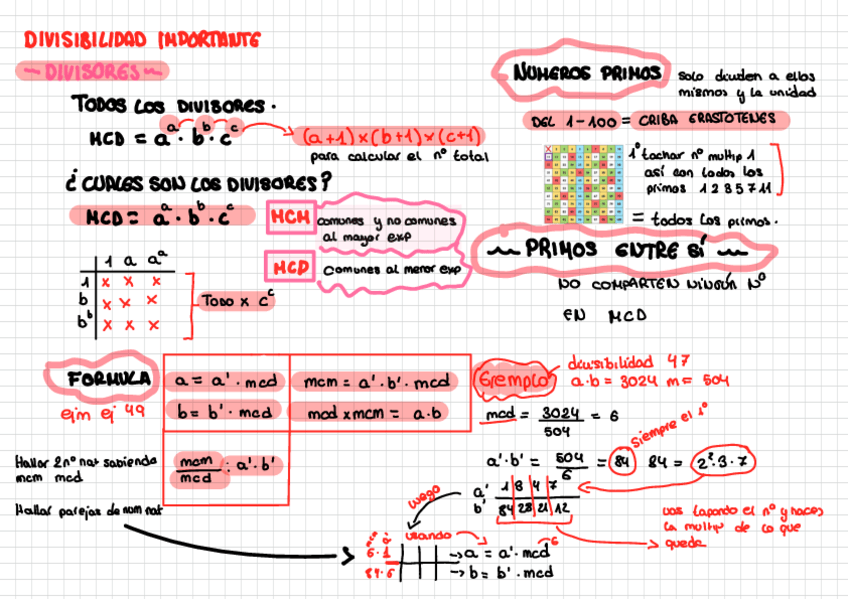 DIVISIBILIDAD IMPORTANTE
~ DIVISORES ~
TODOS LOS DIVISORES.
MCD = a^a · b^b · c^c
(a+1)×(b+1)×(c+1)
para calcular el nº total
¿CUALES SON LOS DIVISORES?
MCD = a^a · b^b · c^c
MCM
comunes y no comunes
al mayor exp
MCD
comunes al menor exp
1 a a^a
1 x x x
b x x x
b^b x x x
TODO x c^c
NUMEROS PRIMOS
solo dividen a ellos
mismos y la unidad
DEL 1-100 = CRIBA ERASTOTENES
1º tachar nº multip 1
así con todos los
primos 1 2 3 5 7 11
= todos los primos.
~ PRIMOS ENTRE SÍ ~
NO COMPARTEN NINGÚN Nº
EN MCD
FORMULA
ejm ej 49
a = a' · mcd
mcm = a' · b' · mcd
b = b' · mcd
mcd x mcm = a · b
mcm/mcd : a' · b'
Hallar 2 nº nat sabiendo
mcm mcd
Hallar parejas de num nat
Ejemplo
divisibilidad 47
a·b = 3024 m = 504
mcd = 3024/504 = 6
siempre el 1º
a'·b' = 504/6 = 84 84 = 2²·3·7
a' 1 3 4 7
b' 84 28 21 12
vas tapando el nº y haces
la multip de lo que
queda
luego
usando
6·1
84·6
→ a = a' · mcd 6
→ b = b' · mcd